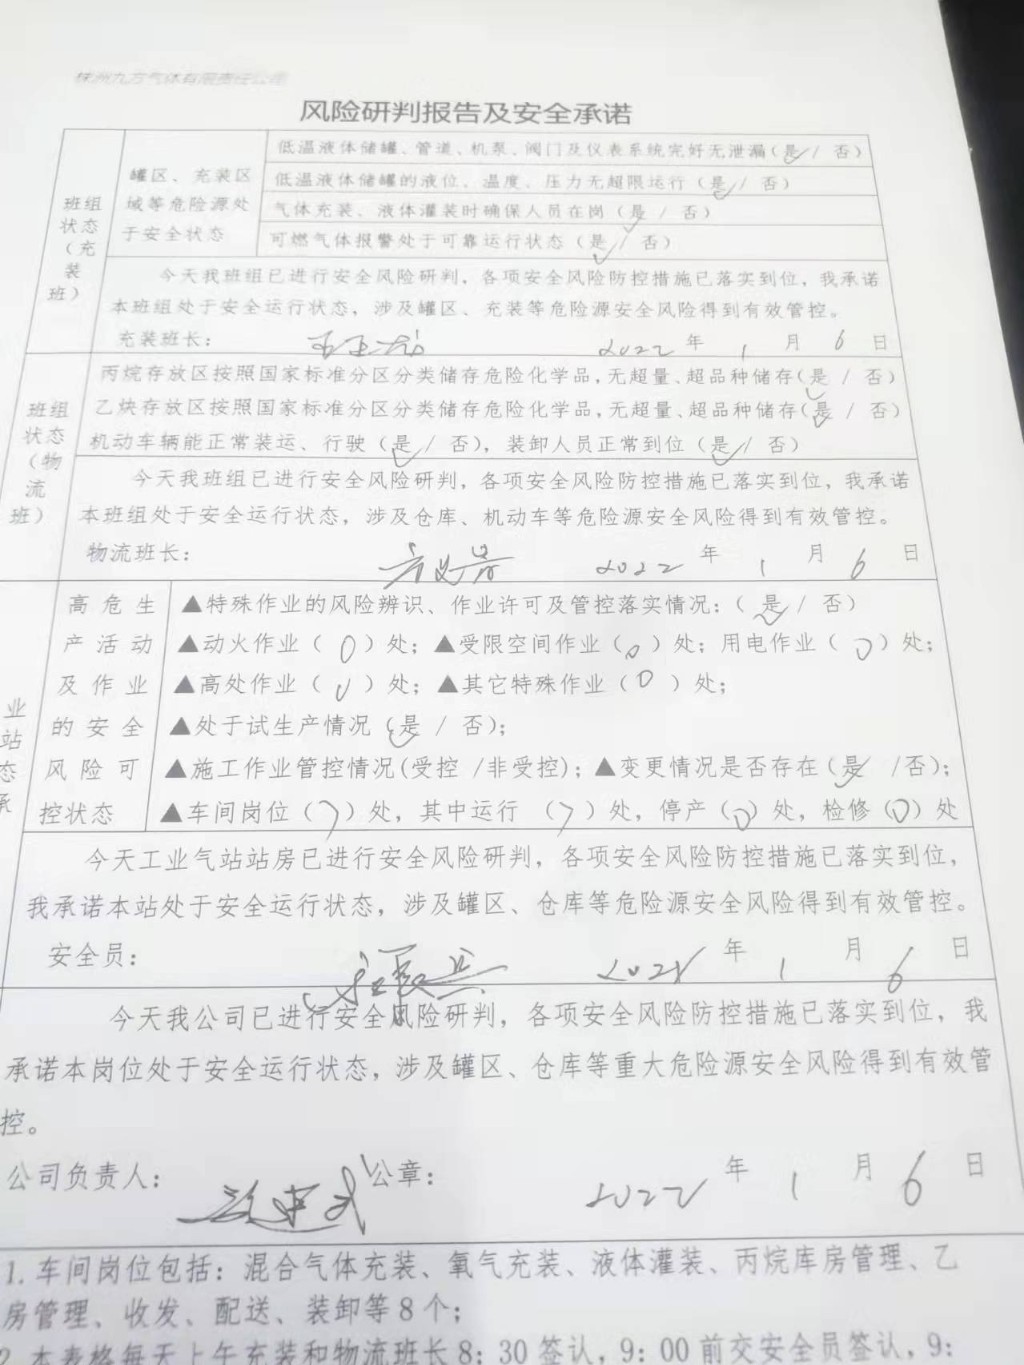 株洲九方气体有限责任公司
风险研判报告及安全承诺
班组状态（充装班）
罐区、充装区域等危险源处于安全状态
低温液体储罐、管道、机泵、阀门及仪表系统完好无泄漏（是✓/ 否）
低温液体储罐的液位、温度、压力无超限运行（是✓/ 否）
气体充装、液体灌装时确保人员在岗（是✓/ 否）
可燃气体报警处于可靠运行状态（是✓/ 否）
今天我班组已进行安全风险研判，各项安全风险防控措施已落实到位，我承诺
本班组处于安全运行状态，涉及罐区、充装等危险源安全风险得到有效管控。
充装班长： 2022 年 1 月 6 日
班组状态（物流班）
丙烷存放区按照国家标准分区分类储存危险化学品，无超量、超品种储存（是✓/ 否）
乙炔存放区按照国家标准分区分类储存危险化学品，无超量、超品种储存（是✓/ 否）
机动车辆能正常装运、行驶（是✓/ 否），装卸人员正常到位（是✓/ 否）
今天我班组已进行安全风险研判，各项安全风险防控措施已落实到位，我承诺
本班组处于安全运行状态，涉及仓库、机动车等危险源安全风险得到有效管控。
物流班长： 2022 年 1 月 6 日
业
站
态
承
高危生产活动及作业的安全风险可控状态
▲特殊作业的风险辨识、作业许可及管控落实情况：（是✓/ 否）
▲动火作业（0）处；▲受限空间作业（0）处；用电作业（0）处；
▲高处作业（0）处；▲其它特殊作业（0）处；
▲处于试生产情况（是✓/ 否）；
▲施工作业管控情况(受控 /非受控)；▲变更情况是否存在（是✓/否）；
▲车间岗位（7）处，其中运行（7）处，停产（0）处，检修（0）处
今天工业气站站房已进行安全风险研判，各项安全风险防控措施已落实到位，
我承诺本站处于安全运行状态，涉及罐区、仓库等危险源安全风险得到有效管控。
安全员： 年 1 月 6 日
今天我公司已进行安全风险研判，各项安全风险防控措施已落实到位，我
承诺本岗位处于安全运行状态，涉及罐区、仓库等重大危险源安全风险得到有效管
控。
公司负责人： 公章： 2022 年 1 月 6 日
1. 车间岗位包括：混合气体充装、氧气充装、液体灌装、丙烷库房管理、乙
房管理、收发、配送、装卸等8个；
2 本表格每天上午充装和物流班长8：30签认，9：00前交安全员签认，9：